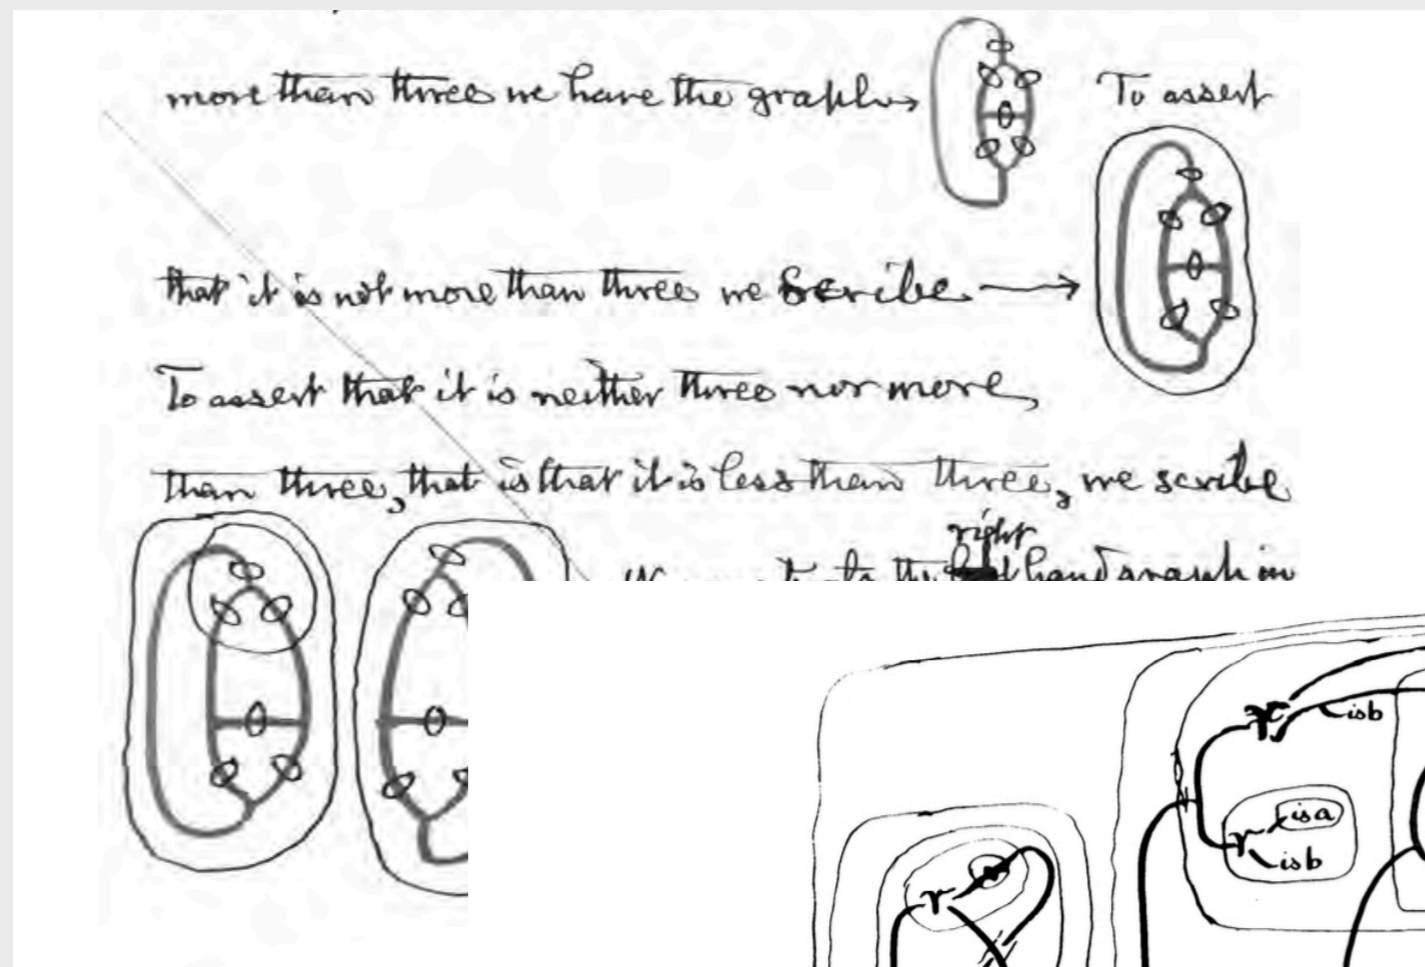 more than three we have the graph
To assert
that it is not more than three we scribe
To assert that it is neither three nor more
than three, that is that it is less than three, we scribe
right
hand graph in
is b
is a
r
is b
r